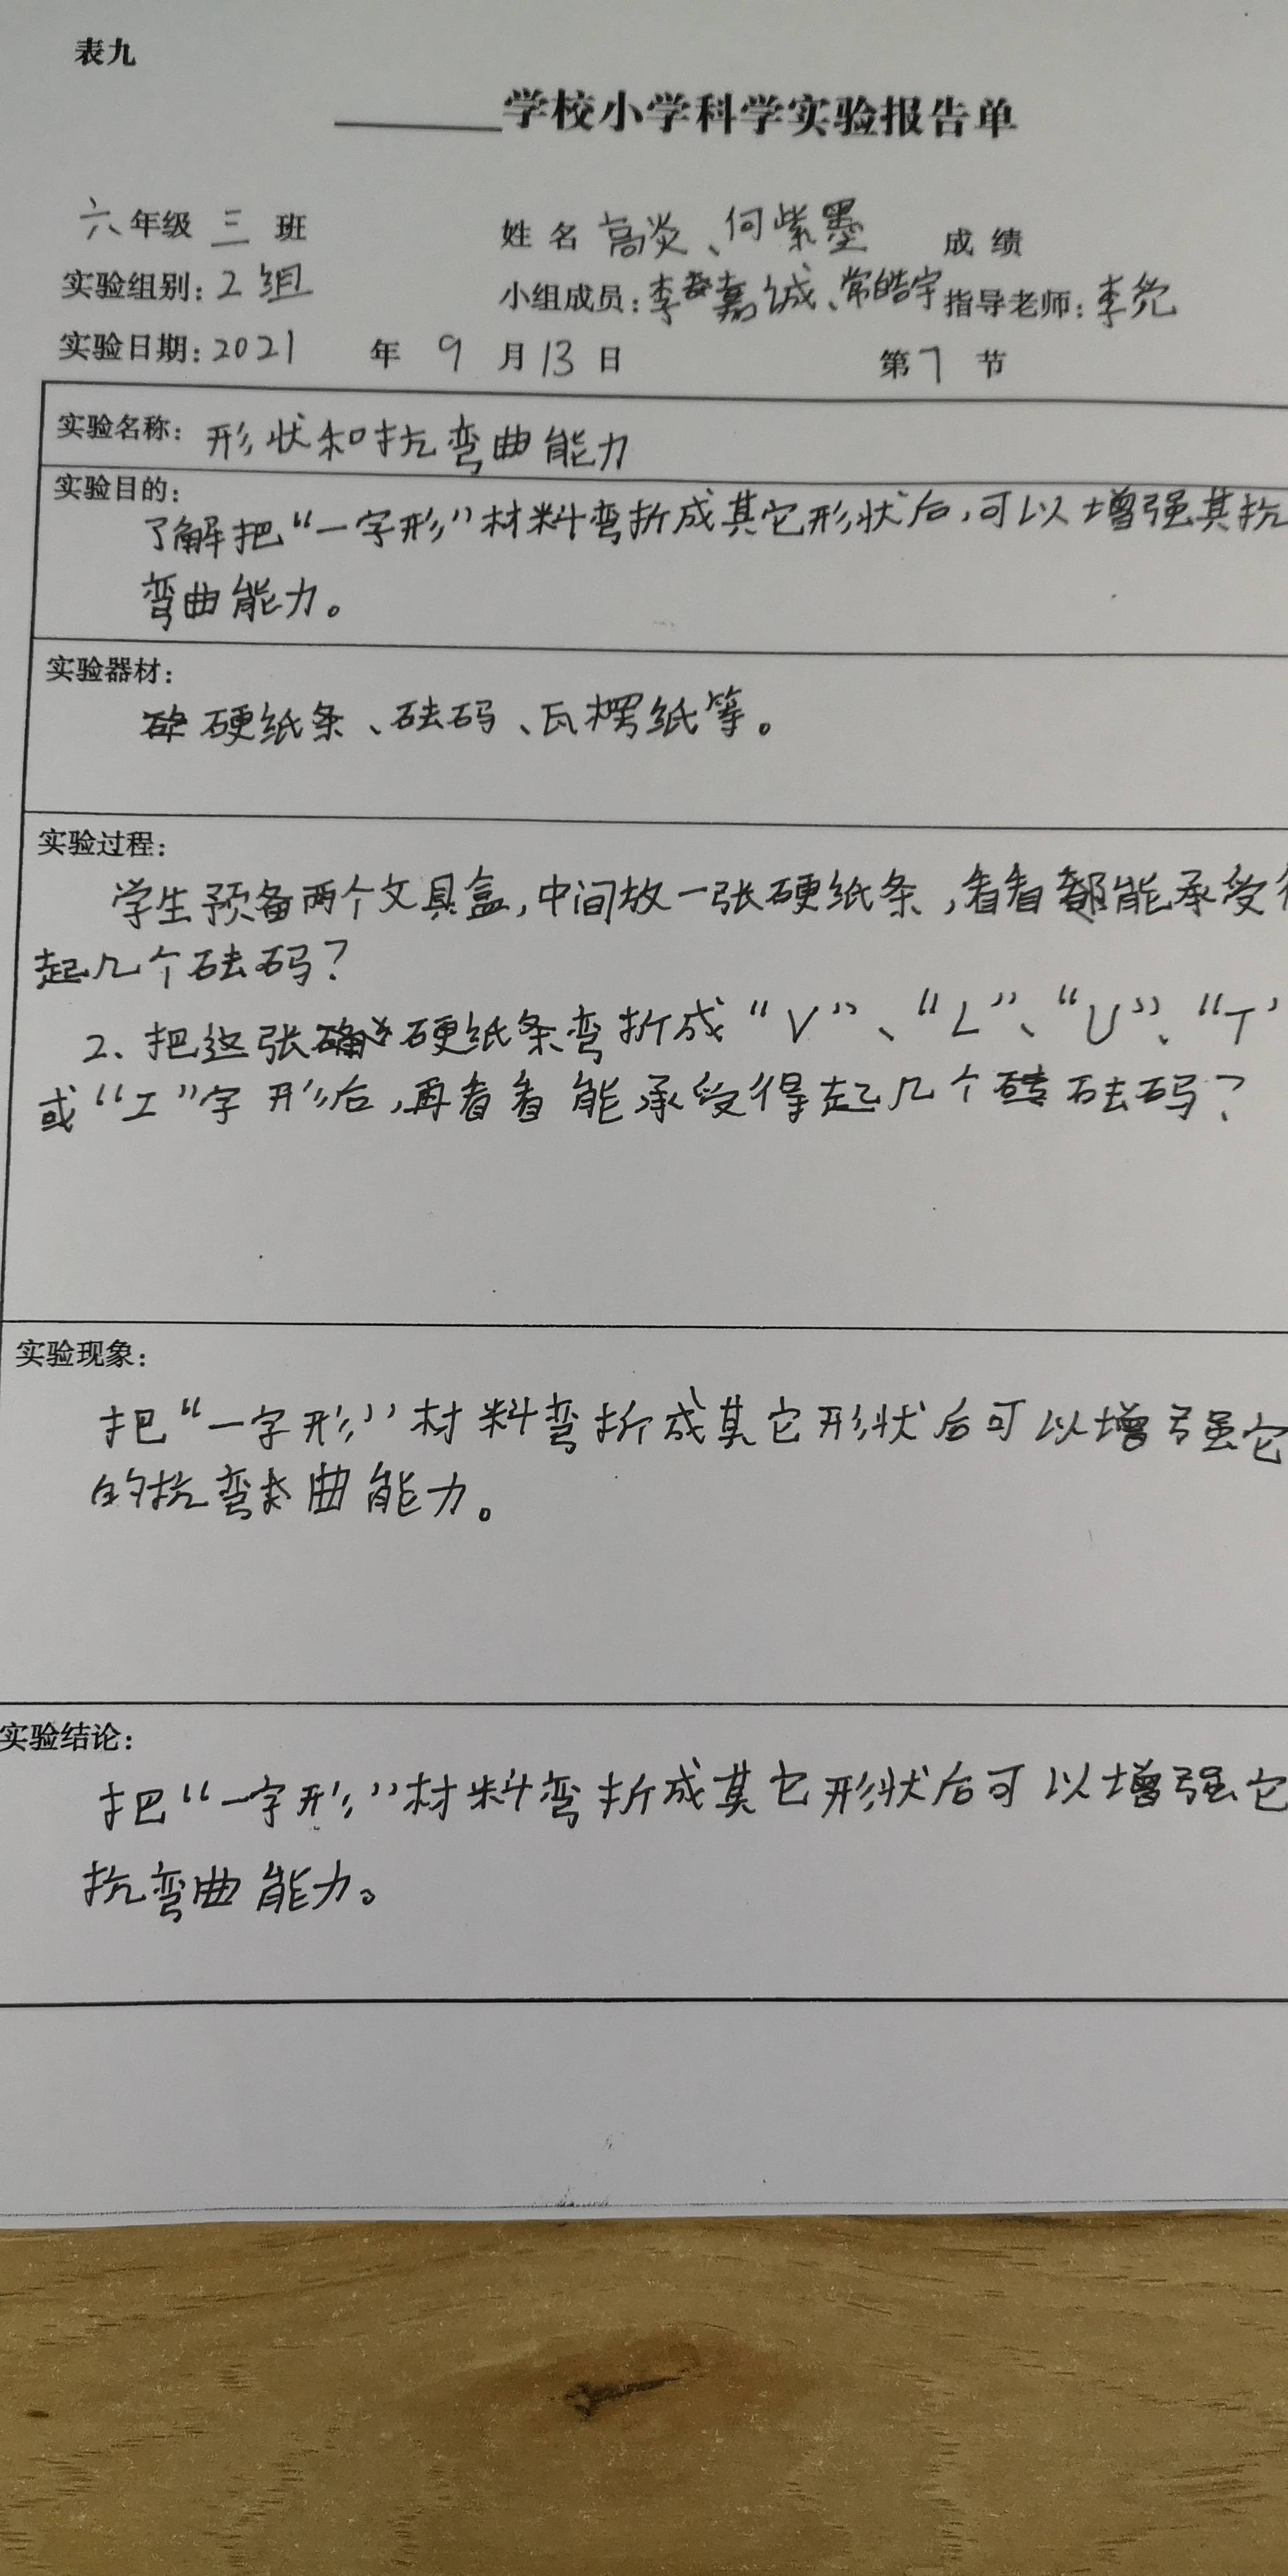 表九
______学校小学科学实验报告单
六年级 三 班 姓 名 高炎、何紫墨 成 绩
实验组别:2组 小组成员:李嘉诚、常皓宇 指导老师:李
实验日期:2021 年 9 月 13 日 第 7 节
实验名称: 形状和抗弯曲能力
实验目的:
了解把“一字形”材料弯折成其它形状后,可以增强其抗
弯曲能力。
实验器材:
硬纸条、砝码、瓦楞纸等。
实验过程:
学生预备两个文具盒,中间放一张硬纸条,看看都能承受
起几个砝码?
2、把这张硬纸条弯折成“V”、“L”、“U”、“T”
或“工”字形后,再看看能承受得起几个砝码?
实验现象:
把“一字形”材料弯折成其它形状后可以增强它
的抗弯曲能力。
实验结论:
把“一字形”材料弯折成其它形状后可以增强它
抗弯曲能力。